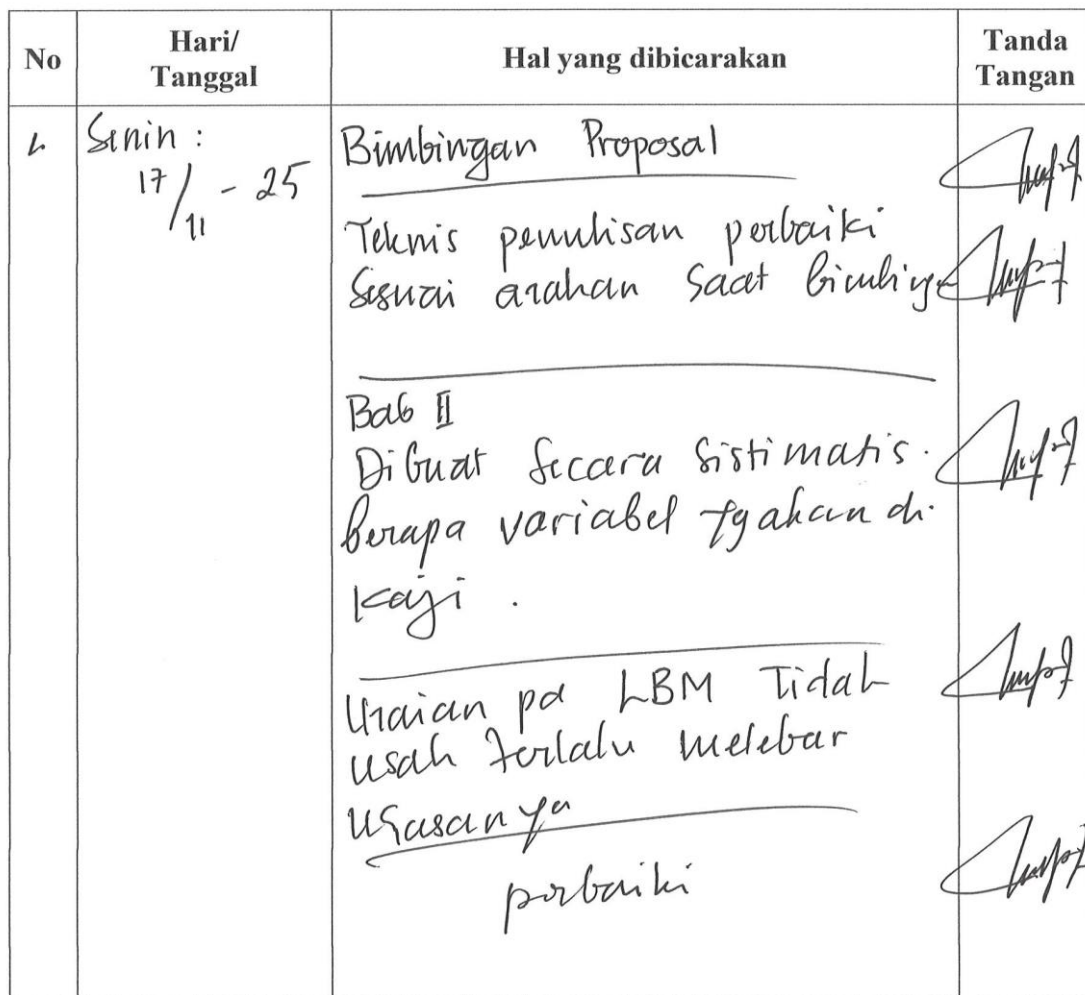 No
Hari/
Tanggal
Hal yang dibicarakan
Tanda
Tangan
1.
Senin :
17/11 - 25
Bimbingan Proposal
Teknis penulisan perbaiki
Sesuai arahan Saat bimbingan
Bab II
Dibuat Secara Sistimatis.
berapa variabel yg akan di
kaji.
Uraian pd LBM Tidak
usah terlalu melebar
Ulasannya
perbaiki